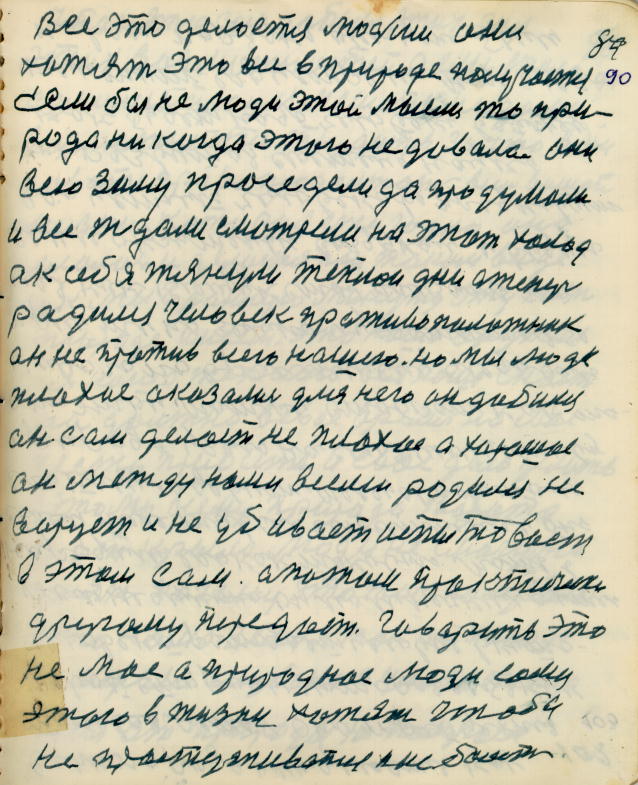 Все это делается людьми они
хотят это все в природе получается 90
Если бы не люди этой мысли то при-
рода никогда этого не довала. они
всю зиму проседели да продумали
и все ждали смотрели на этот холод
ак себя тянули теплои дни а тепер
радился человек противоположник
он не против всего нашего. но мы люде
плохие оказались для него он добился
он сам делает не плохое а хорошое
он между нами всеми родился не
варует и не убивает
в этом сам. а потом практически
другому передаст. Говарить это
не мое а природное люди сами
этого в жизни хотят чтобы
не простуживатся и не болеть